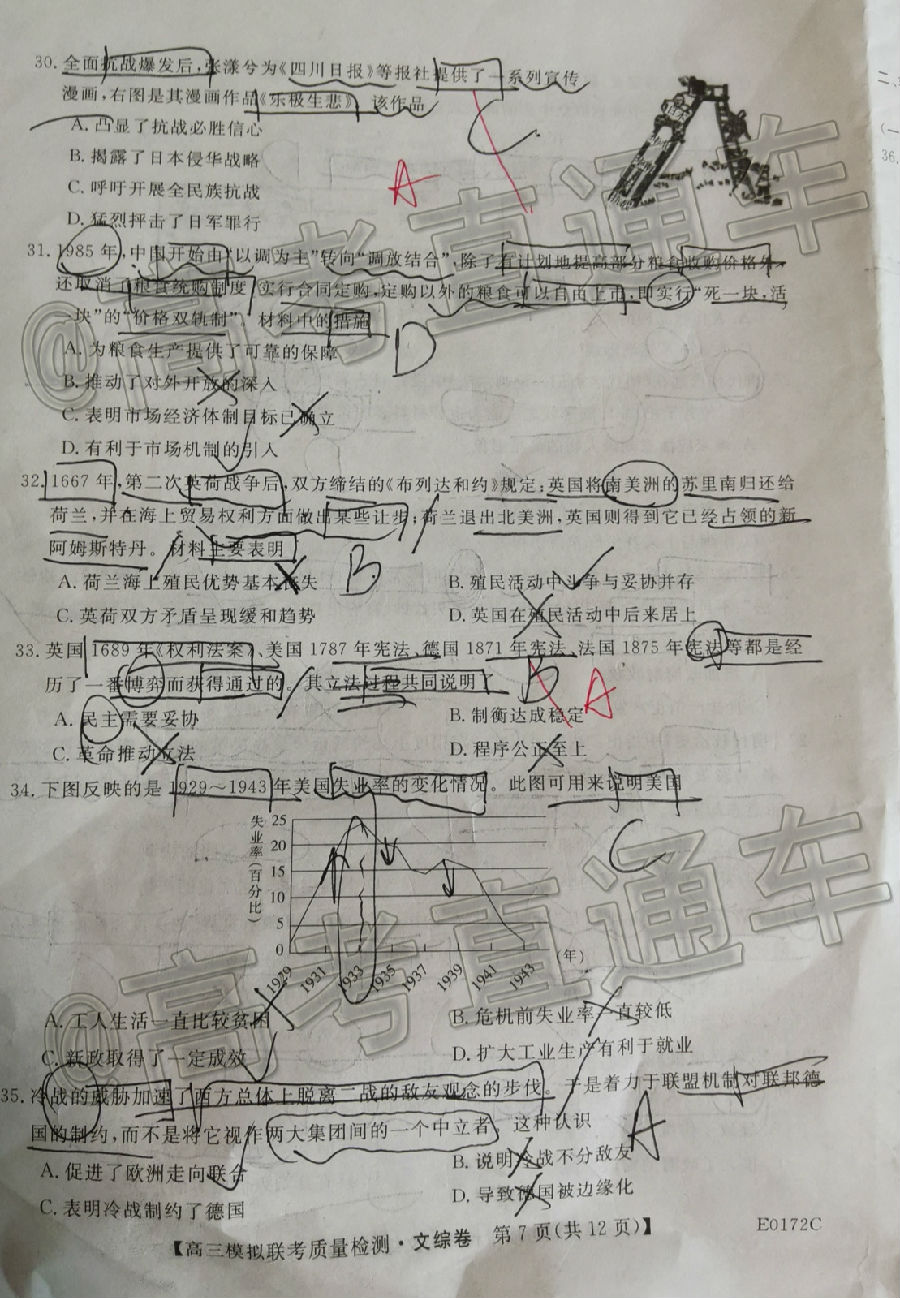 30. 全面抗战爆发后,张漾兮为《四川日报》等报社提供了一系列宣传
漫画,右图是其漫画作品《乐极生悲》。该作品
A. 凸显了抗战必胜信心
B. 揭露了日本侵华战略
C. 呼吁开展全民族抗战
D. 猛烈抨击了日军罪行
C
A
二、
(一
36.
31. 1985年,中国开始由“以调为主”转向“调放结合”,除了有计划地提高部分粮食收购价格外,
还取消了粮食统购制度,实行合同定购,定购以外的粮食可以自由上市,即实行“死一块,活
一块”的“价格双轨制”。材料中的措施
A. 为粮食生产提供了可靠的保障
B. 推动了对外开放的深入
C. 表明市场经济体制目标已确立
D. 有利于市场机制的引入
D
32. 1667年,第二次英荷战争后,双方缔结的《布列达和约》规定:英国将南美洲的苏里南归还给
荷兰,并在海上贸易权利方面做出某些让步;荷兰退出北美洲,英国则得到它已经占领的新
阿姆斯特丹。材料主要表明
B
A. 荷兰海上殖民优势基本丧失 B. 殖民活动中斗争与妥协并存
C. 英荷双方矛盾呈现缓和趋势 D. 英国在殖民活动中后来居上
33. 英国1689年《权利法案》、美国1787年宪法、德国1871年宪法、法国1875年宪法等都是经
历了一番博弈而获得通过的。其立法过程共同说明了
B A
A. 民主需要妥协 B. 制衡达成稳定
C. 革命推动立法 D. 程序公正至上
34. 下图反映的是1929～1943年美国失业率的变化情况。此图可用来说明美国
C
失业率(百分比)
25
20
15
10
5
0
1929 1931 1933 1935 1937 1939 1941 1943 (年)
A. 工人生活一直比较贫困 B. 危机前失业率一直较低
C. 新政取得了一定成效 D. 扩大工业生产有利于就业
35. 冷战的威胁加速了西方总体上脱离二战的敌友观念的步伐。于是着力于联盟机制对联邦德
国的制约,而不是将它视作两大集团间的一个中立者。这种认识
A
A. 促进了欧洲走向联合 B. 说明冷战不分敌友
C. 表明冷战制约了德国 D. 导致德国被边缘化
【高三模拟联考质量检测·文综卷 第7页(共12页)】 E0172C
@高考直通车
@高考直通车